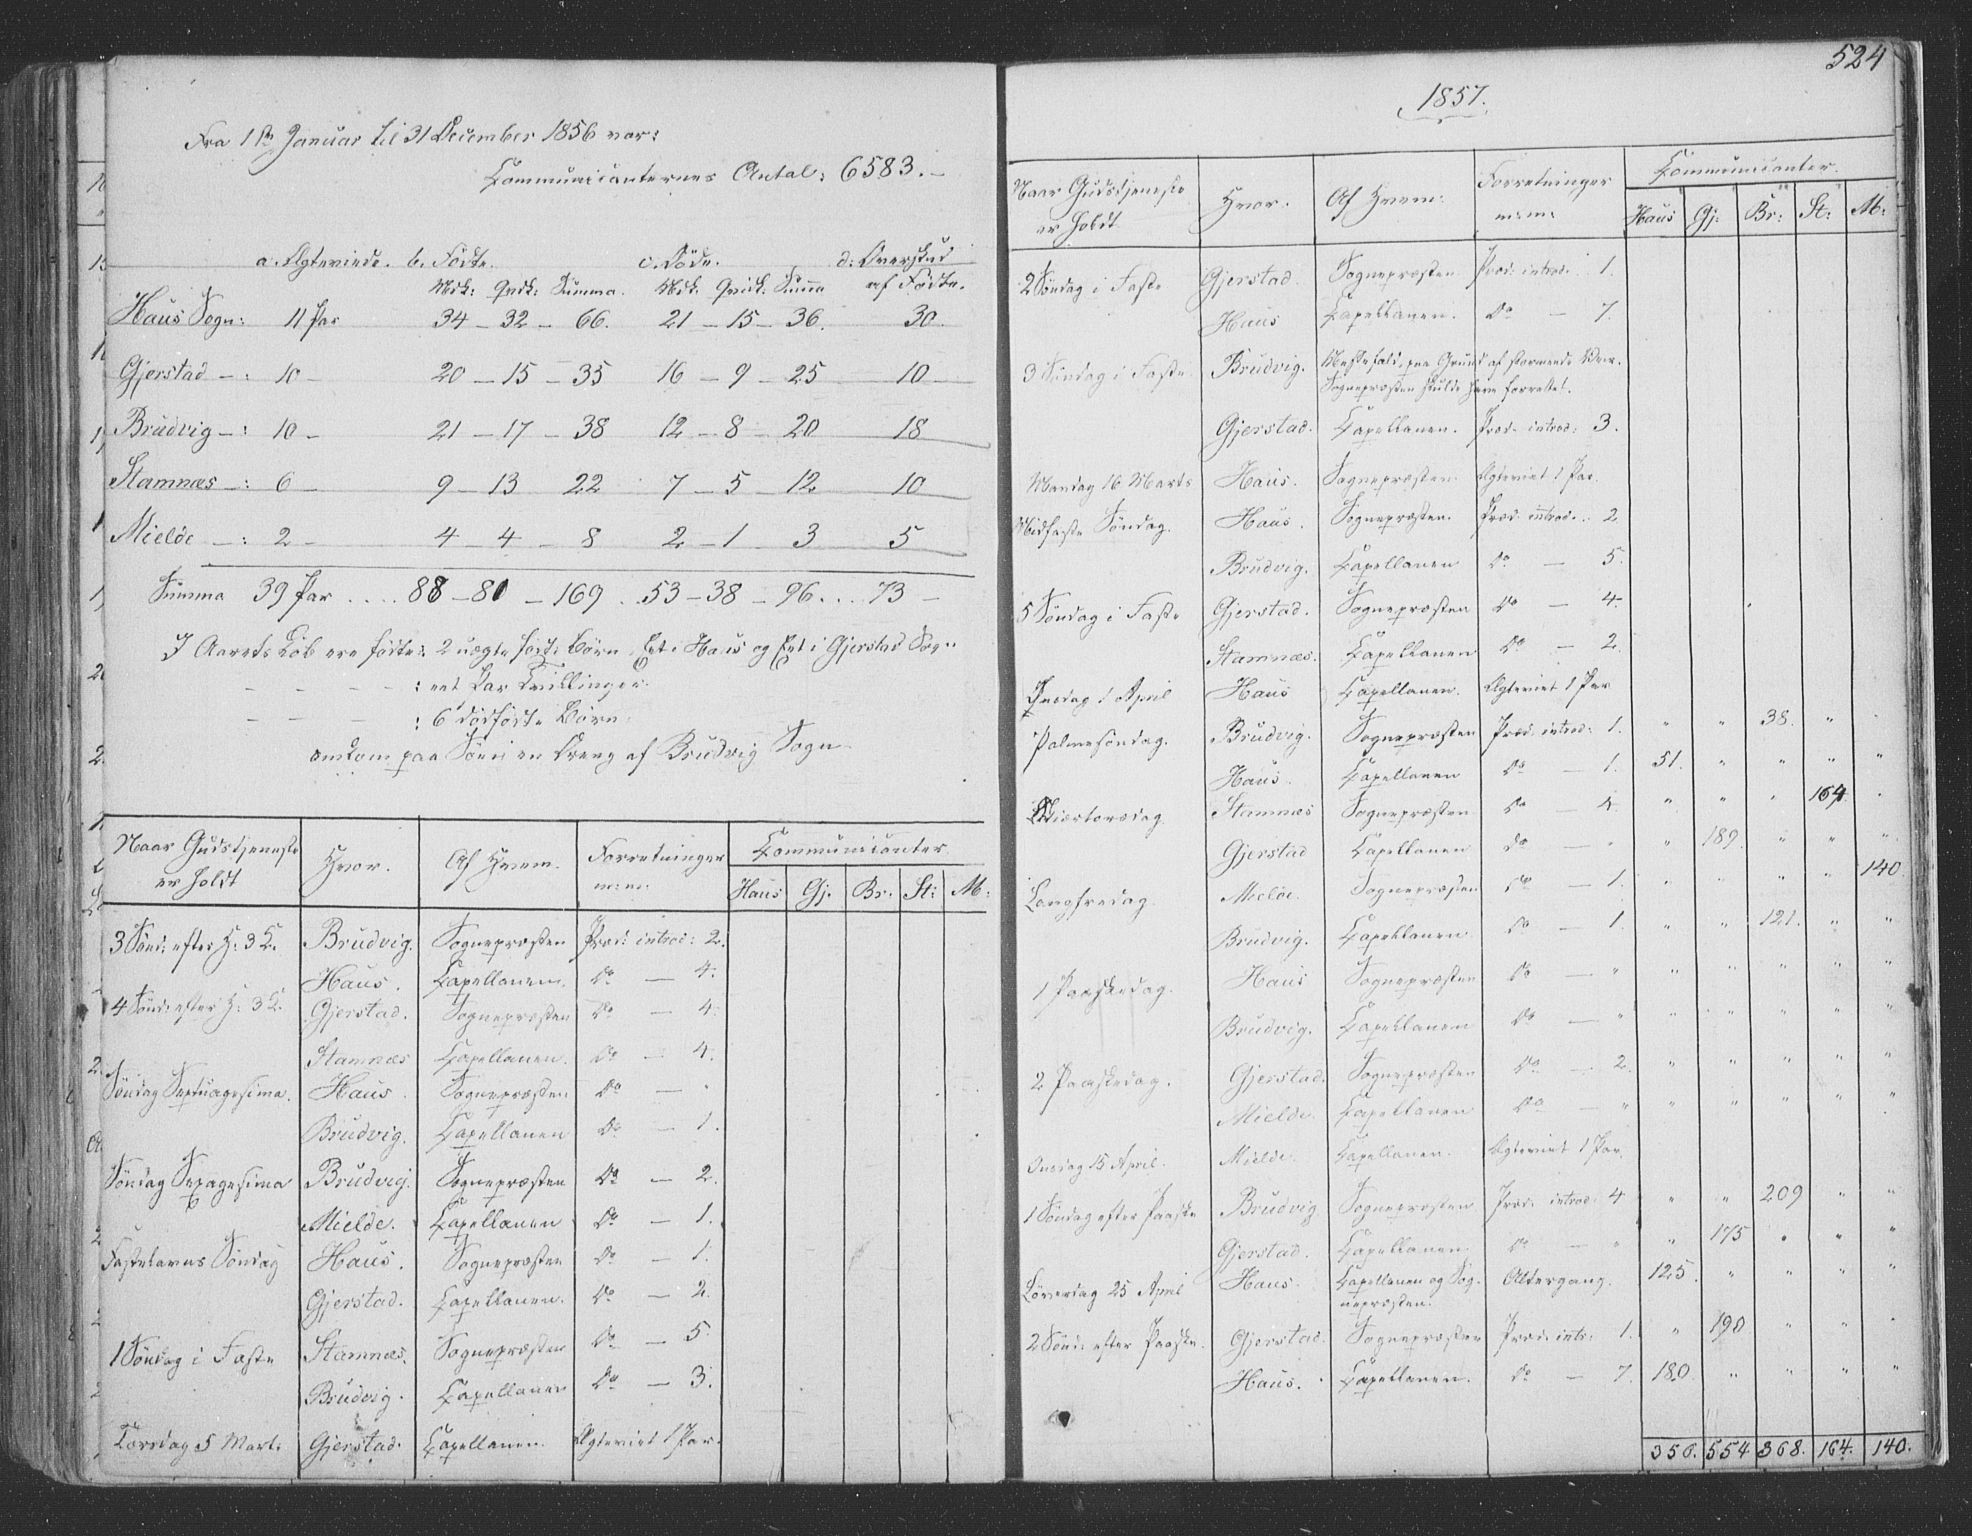 Fra 1ste Januar til 31 December 1856 var:
Communicanternes Antal: 6583.-
a. Ægteviede. b. Fødte. c. Døde. d: Overskud
Mdk: Qvdk: Summa. Mdk. Qvidk. Summa af Fødte.
Haus Sogn: 11 Par 34 - 32 - 66. 21 - 15 - 36. 30.
Gjerstad -: 10 - 20 - 15 - 35 16 - 9 - 25 10
Brudvig -: 10 - 21 - 17 - 38 12 - 8 - 20 18
Stamnæs -: 6 - 9 - 13 22 7 - 5 - 12 10
Mielde -: 2 - 4 - 4 - 8 2 - 1 3 5
Summa 39 Par .... 88 - 81 - 169 .. 53 - 38 - 96 ... 73 -
I Aarets Løb ere fødte: 2 uægte fødte Børn, Et i Haus og Eet i Gjerstad Sogn
- - - - : eet Par Tvillinger.
- - - : 6 dødfødte Børn.
omkom paa Søen en Dreng af Brudvig Sogn
Naar Gudstjeneste er holdt Hvor. Af Hvem. Forretninger m: m: Communicanter
Haus Gj. Br. St: M:
3 Sønd: efter H: 3 K. Brudvig. Sognepræsten Præd: introd: 2.
Haus. Capellanen. Do - 4.
4 Sønd: efter H: 3 K. Gjerstad. Sognepræsten Do - 4.
Stamnæs Capellanen. Do - 4.
Søndag Septuagesima. Haus. Sognepræsten Do - "
Brudvig. Capellanen Do - 1.
Søndag Sexagesima Brudvig. Sognepræsten Do - 2.
Mielde. Capellanen Do - 1.
Fastelavns Søndag Haus. Sognepræsten Do - 1.
Gjerstad. Capellanen. Do - 2.
1 Søndag i Faste Stamnæs. Sognepræsten Do - 5.
Brudvig. Capellanen Do - 3.
Torsdag 5 Mart: Gjerstad. Capellanen. Ægteviet 1 Par.
524
1857.
Naar Gudstjeneste er holdt Hvor. Af Hvem: Forretninger m: m: Communicanter.
Haus Gj: Br: St: M:
2 Søndag i Faste Gjerstad. Sognepræsten Præd: introd: 1.
Haus Capellanen. Do - 7.
3 Søndag i Faste Brudvig. Messefald, paa Grund af stormende Veir.
Sognepræsten skulde have forrettet.
Gjerstad. Capellanen. Præd. introd: 3.
Mandag 16 Marts Haus. Sognepræsten. Ægteviet 1 Par.
Midfaste Søndag. Haus. Sognepræsten. Præd: introd.. 2
Brudvig. Capellanen Do - 5.
5 Søndag i Faste Gjerstad. Sognepræsten Do - 4.
Stamnæs. Capellanen Do - 2.
Onsdag 1 April Haus Capellanen. Ægteviet 1 Par
Palmesøndag. Brudvig. Sognepræsten Præd: introd: 1. " " 38. " "
Haus. Capellanen Do - 1. 51. " " " "
Skiærtorsdag Stamnæs Sognepræsten Do - 4. " " " 164 "
Gjerstad Capellanen Do - " " 189. " " "
Langfredag. Mielde. Sognepræsten Do - 1. " " " " 140
Brudvig. Capellanen. Do - 1. " " 121. " "
1 Paaskedag. Haus Sognepræsten Do - " " " " " "
Brudvig. Capellanen Do - " " " " " "
2 Paaskedag. Gjerstad. Sognepræsten Do - 2. " " " " "
Mielde. Capellanen Do - " " " " " "
Onsdag 15 April. Mielde. Capellanen. Ægteviet 1 Par.
1 Søndag efter Paaske Brudvig Sognepræsten Præd: introd: 4 " " 209 " "
Gjerstad. Capellanen. Do - " " 175 " " "
Løverdag 25 April Haus. Capellanen og Sognepræsten. Altergang. 125. " " " "
2 Sønd: efter Paaske Gjerstad. Sognepræsten Præd: intr: 1. " 190 " " "
Haus. Capellanen. Do - 7. 180. " " " "
356. 554 368. 164. 140.